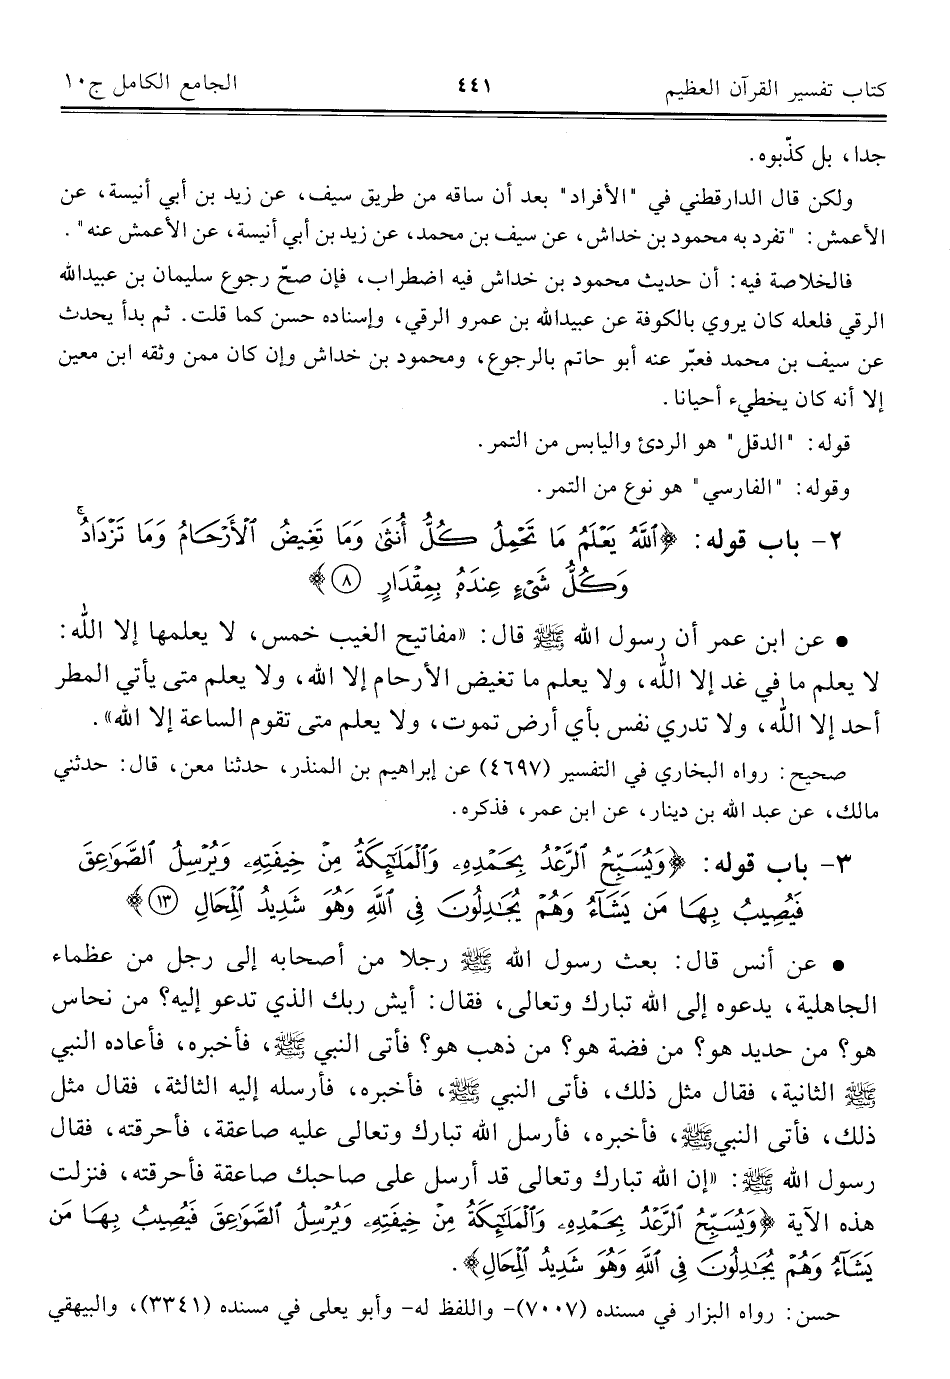 كتاب تفسير القرآن العظيم ٤٤١ الجامع الكامل ج١٠
جدا، بل كذّبوه.
ولكن قال الدارقطني في "الأفراد" بعد أن ساقه من طريق سيف، عن زيد بن أبي أنيسة، عن
الأعمش: "تفرد به محمود بن خداش، عن سيف بن محمد، عن زيد بن أبي أنيسة، عن الأعمش عنه".
فالخلاصة فيه: أن حديث محمود بن خداش فيه اضطراب، فإن صحّ رجوع سليمان بن عبيدالله
الرقي فلعله كان يروي بالكوفة عن عبيدالله بن عمرو الرقي، وإسناده حسن كما قلت. ثم بدأ يحدث
عن سيف بن محمد فعبّر عنه أبو حاتم بالرجوع، ومحمود بن خداش وإن كان ممن وثقه ابن معين
إلا أنه كان يخطيء أحيانا.
قوله: "الدقل" هو الردئ واليابس من التمر.
وقوله: "الفارسي" هو نوع من التمر.
٢- باب قوله: ﴿ٱللَّهُ يَعْلَمُ مَا تَحْمِلُ كُلُّ أُنثَىٰ وَمَا تَغِيضُ ٱلْأَرْحَامُ وَمَا تَزْدَادُ ۚ
وَكُلُّ شَىْءٍ عِندَهُۥ بِمِقْدَارٍ ﴿٨﴾﴾
• عن ابن عمر أن رسول الله ﷺ قال: «مفاتيح الغيب خمس، لا يعلمها إلا الله:
لا يعلم ما في غد إلا الله، ولا يعلم ما تغيض الأرحام إلا الله، ولا يعلم متى يأتي المطر
أحد إلا الله، ولا تدري نفس بأي أرض تموت، ولا يعلم متى تقوم الساعة إلا الله».
صحيح: رواه البخاري في التفسير (٤٦٩٧) عن إبراهيم بن المنذر، حدثنا معن، قال: حدثني
مالك، عن عبد الله بن دينار، عن ابن عمر، فذكره.
٣- باب قوله: ﴿وَيُسَبِّحُ ٱلرَّعْدُ بِحَمْدِهِۦ وَٱلْمَلَٰٓئِكَةُ مِنْ خِيفَتِهِۦ وَيُرْسِلُ ٱلصَّوَٰعِقَ
فَيُصِيبُ بِهَا مَن يَشَآءُ وَهُمْ يُجَٰدِلُونَ فِى ٱللَّهِ وَهُوَ شَدِيدُ ٱلْمِحَالِ ﴿١٣﴾﴾
• عن أنس قال: بعث رسول الله ﷺ رجلا من أصحابه إلى رجل من عظماء
الجاهلية، يدعوه إلى الله تبارك وتعالى، فقال: أيش ربك الذي تدعو إليه؟ من نحاس
هو؟ من حديد هو؟ من فضة هو؟ من ذهب هو؟ فأتى النبي ﷺ، فأخبره، فأعاده النبي
ﷺ الثانية، فقال مثل ذلك، فأتى النبي ﷺ، فأخبره، فأرسله إليه الثالثة، فقال مثل
ذلك، فأتى النبي ﷺ، فأخبره، فأرسل الله تبارك وتعالى عليه صاعقة، فأحرقته، فقال
رسول الله ﷺ: «إن الله تبارك وتعالى قد أرسل على صاحبك صاعقة فأحرقته، فنزلت
هذه الآية ﴿وَيُسَبِّحُ ٱلرَّعْدُ بِحَمْدِهِۦ وَٱلْمَلَٰٓئِكَةُ مِنْ خِيفَتِهِۦ وَيُرْسِلُ ٱلصَّوَٰعِقَ فَيُصِيبُ بِهَا مَن
يَشَآءُ وَهُمْ يُجَٰدِلُونَ فِى ٱللَّهِ وَهُوَ شَدِيدُ ٱلْمِحَالِ﴾.
حسن: رواه البزار في مسنده (٧٠٠٧)- واللفظ له- وأبو يعلى في مسنده (٣٣٤١)، والبيهقي